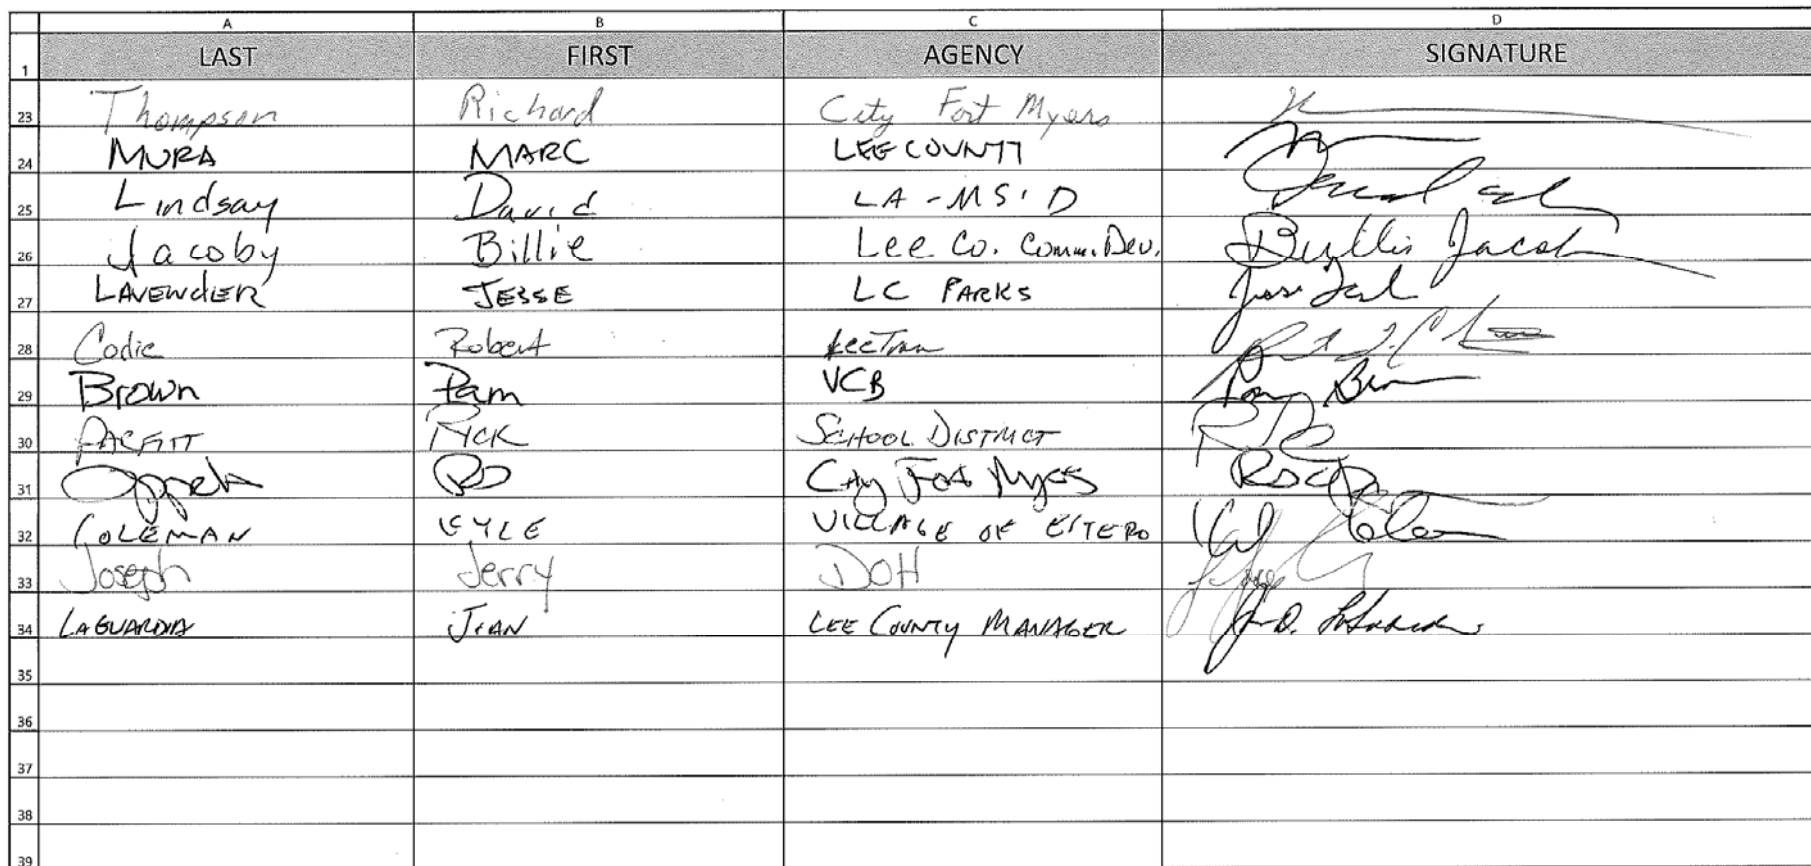 A B C D
1 LAST FIRST AGENCY SIGNATURE
23 Thompson Richard City Fort Myers
24 MURA MARC LEE COUNTY
25 Lindsay David LA-MSID
26 Jacoby Billie Lee Co. Comm. Dev. Jacob
27 LAVENdER JESSE LC PARKS
28 Codie Robert LeeTran
29 Brown Pam VCB Pam Brown
30 PARFITT RICK SCHOOL DISTRICT
31 City Fort Myers
32 COLEMAN KYLE VILLAGE OF ESTERO
33 Joseph Jerry DOH
34 LAGUARDIA JEAN LEE COUNTY MANAGER
35
36
37
38
39